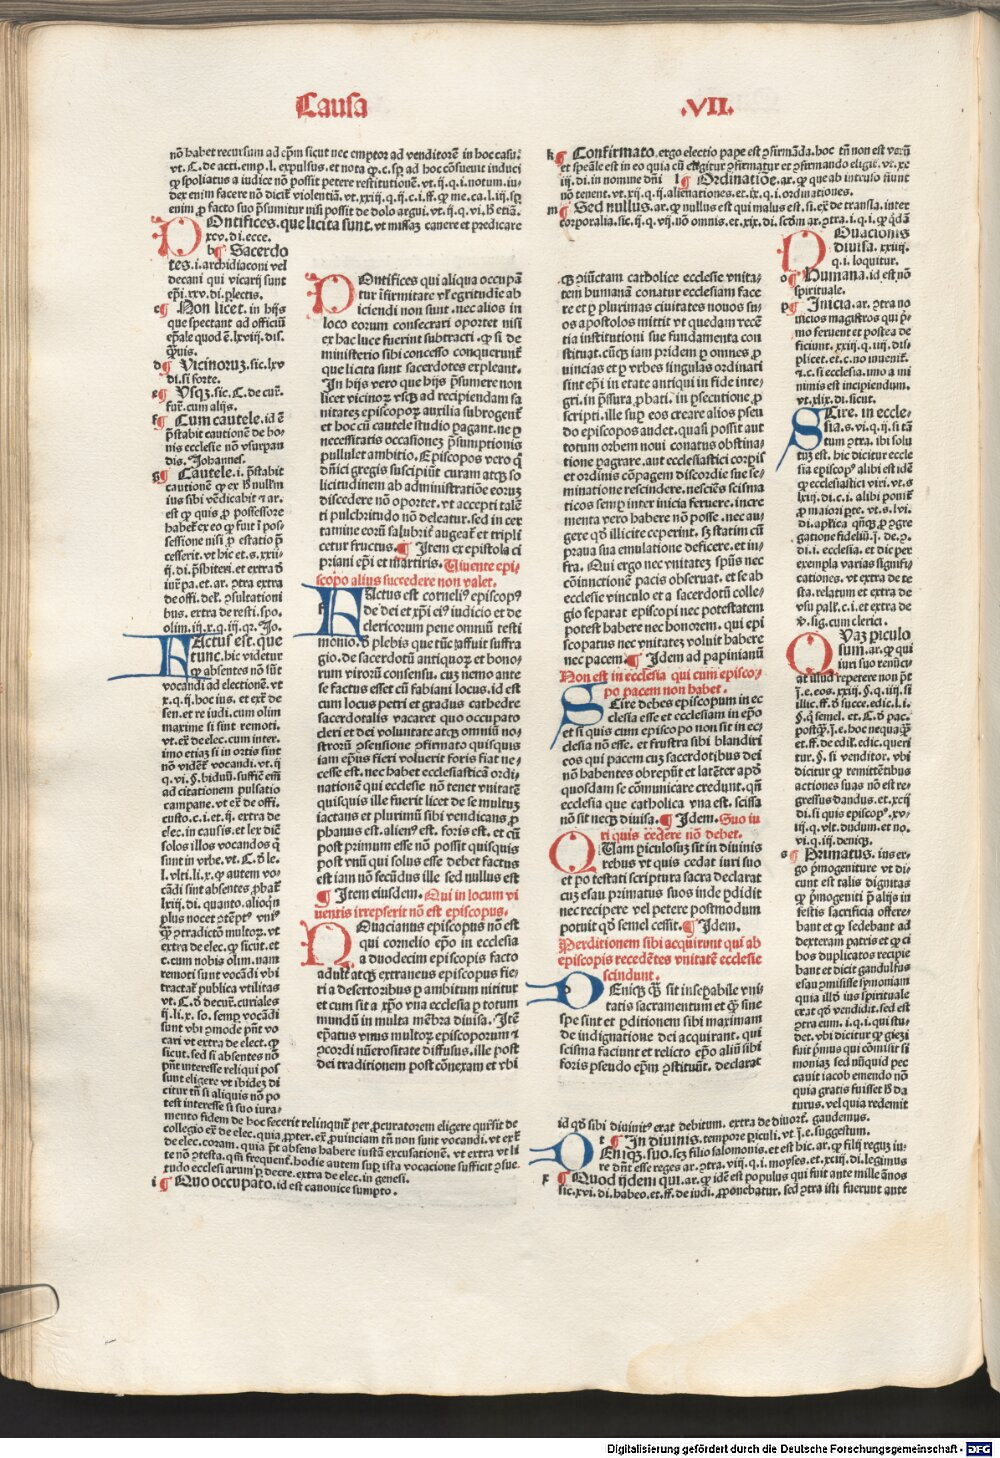 Causa
.VII.
nō habet recursum ad ep̄m sicut nec emptor ad venditorē in hoc casu.
vt. C. de acti. emp. l. expulsus. et nota ꝙ .c. sꝑ ad hoc cōsueuit induci
ꝙ spoliatus a iudice nō possit petere restitutionē. vt .ij. q. i. notum. iu-
dex enim facere nō dicit̄ violentiā. vt. xxiij. q. ij. c. i. ff. ꝙ me. ca. l. iij. sꝫ
enim ꝓ facto suo p̄sumitur nisi possit de dolo argui. vt. ij. q. vi. §. etiā.
POntifices. que licita sunt. vt missaȝ canere et predicare
xcv. di. ecce.
b¶ Sacerdo
tes. i. archidiaconi vel
decani qui vicarij sunt
ep̄i. xxv. di. plectis.
c¶ Non licet. in hijs
que spectant ad officiū
ep̄ale quod ē. lxviij. dis.
q̄uis.
d¶ Vicinoruȝ. sic. lxv
di. si forte.
e¶ Vsqȝ. sic. C. de cur.
fur. cum alijs.
f¶ Cum cautele. id ē
p̄stabit cautionē de bo-
nis ecclesie nō vsurpan
dis. Johannes.
g¶ Cautele. i. p̄stabit
cautionē ꝙ ex hͦ nullum
ius sibi vēdicabit ⁊ ar.
est ꝙ quis ꝓ possessore
habet̄ ex eo ꝙ fuit ī pos-
sessione nisi ꝓ estatio p̄
cesserit. vt hic et. s. xxij-
ij. di. p̄sbiteri. et extra ð
iur̄pa. et. ar. ꝯtra extra
de offi. del. ꝯsultationi
bus. extra de resti. spo.
olim. iij. x. q. iij. qȝ. Jo.
FActus est. que
tunc. hic videtur
ꝙ absentes nō sūt
vocandi ad electionē. vt
x. q. ij. hoc ius. et ext̄ de
sen. et re iudi. cum olim
maxime si sint remoti.
vt. ex̄ de elec. cum inter-
imo etiaȝ si in ortis sint
nō vidēt̄ vocandi. vt. ij
q. vi. §. biduū. suffic̄ eni
ad citationem pulsatio
campane. vt ex̄ de offi.
custo. c. i. et. ij. extra de
elec. in causis. et lex dic̄
solos illos vocandos q̄
sunt in vrbe. vt. C. ð le.
l. vlti. li. x. ꝙ autem vo-
cādi sint absentes ꝓbat̄
lxiij. di. quanto. alioqn̄
plus nocet ꝯtēpt̄ vniꝰ
q̄ꝫ ꝯtradictō multorȝ. vt
extra de elec. ꝙ sicut. et
c. cum nobis olim. nam
remoti sunt vocādi vbi
tractat̄ publica vtilitas
vt. C. ð decur̄. curiales
ij. li. x. so. semꝑ vocādi
sunt vbi ꝯmode pn̄t vo
cari vt extra de elect. ꝙ
sicut. sed si absentes nō
pn̄t interesse reliqui pos
sunt eligere vt ibidez di
citur tn̄ si aliquis nō po
test interesse si suo iura-
mento fidem de hoc fecerit relinquit̄ per ꝓcuratorem eligere quēsit de
collegio ex̄ de elec. quia ꝓpter. ex̄ ꝓuinciam tn̄ non sunt vocandi. vt ext̄
de elec. coram. quia p̄t absens habere iustā excusationē. vt extra vt li
te nō ꝯtesta. qn̄ frequent̄. hodie autem suꝑ ista vocacione sufficit ꝯsue
tudo ecclesi arum ꝑ decre. extra de elec. in genesi.
i¶ Quo occupato. id est canonice sumpto.
POntifices qui aliqua occupa
tur īfirmitate vł egritudīe ab
iciendi non sunt. nec alios in
loco eorum consecrari oportet nisi
ex hac luce fuerint subtracti. ꝙ si de
ministerio sibi concesso conquerunt̄
que licita sunt sacerdotes expleant.
In hijs vero que hijs p̄sumere non
licet vicinorȝ vsqȝ ad recipiendam sa
nitateȝ episcoporȝ auxilia subrogent̄
et hoc cū cautele studio ꝑagant. ne ꝑ
necessitatis occasioneȝ p̄sumptionis
pullulet ambitio. Episcopos vero q̄
dn̄ici gregis suscipiūt curam atqȝ so
licitudinem ab administratiōe eoruȝ
discedere nō oportet. vt accepti talē
ti pulchritudo nō deleatur. sed in cer
tamine eorū salubrit̄ augeat̄ et tripli
cetur fructus. ¶ Item ex epistola ci
priani ep̄i et martiris. Uiuente epi-
scopo alius succedere non valet.
FActus est corneliꝰ episcopꝰ
de dei et xp̄i eiꝰ iudicio et de
clericorum pene omniū testi
monio. ð plebis que tūc affuit suffra
gio. de sacerdotū antiquoȝ et bono-
rum virorū consensu. cuȝ nemo ante
se factus esset cū fabiani locus. id est
cum locus petri et gradus cathedre
sacerdotalis vacaret quo occupato
cleri et dei voluntate atqȝ omniū no-
strorū ꝯsensione ꝯfirmato quisquis
iam ep̄us fieri voluerit foris fiat ne-
cesse est. nec habet ecclesiasticā ordi-
nationē qui ecclesie nō tenet vnitatē
quisquis ille fuerit licet de se multuȝ
iactans et plurimū sibi vendicans ꝓ
phanus est. alienꝰ est. foris est. et cū
post primum esse nō possit quisquis
post vnū qui solus esse debet factus
est iam nō secūdus ille sed nullus est
¶ Item eiusdem. Qui in locum vi
uentis irrepserit nō est episcopus.
NOuacianus episcopus nō est
qui cornelio ep̄o in ecclesia
a duodecim episcopis facto
adult̄ atqȝ extraneus episcopus fie-
ri a desertoribus ꝑ ambitum nititur
et cum sit a xp̄o vna ecclesia ꝑ totum
mundū in multa mēbra diuisa. Itē
ep̄atus vnus multorȝ episcoporum ⁊
ꝯcordi nūerositate diffusus. ille post
dei traditionem post cōnexam et vbi
k¶ Confirmato. ergo electio pape est ꝯfirmāda. hoc tn̄ non est verū
et speāle est in eo quia cū eligitur ꝯfirmatur et ꝯfirmando eligit̄. vt. xx
iij. di. in nomine dn̄i l¶ Ordinatiōe. ar. ꝙ que ab inuito fiunt
nō tenent. vt. xij. q. ij. alienationes. et. ix. q. i. ordinationes.
m¶ Sed nullus. ar. ꝙ nullus est qui malus est. si. ex̄ de transla. inter
corporalia. sic. ij. q. vij. nō omnis. et. xix. di. scd̄m ar. ꝯtra. i. q. i. ꝙ qd̄ā
ꝙ ꝓiūctam catholice ecclesie vnita-
tem humanā conatur ecclesiam face
re et ꝑ plurimas ciuitates nouos su-
os apostolos mittit vt quedam recē
tia institutioni sue fundamenta con
stituat. cūqȝ iam pridem ꝑ omnes ꝓ
uincias et ꝑ vrbes singulas ordinati
sint ep̄i in etate antiqui in fide inte-
gri. in p̄ssura ꝓbati. in ꝑsecutione ꝓ
scripti. ille suꝑ eos creare alios pseu
do episcopos audet. quasi possit aut
totum orbem noui conatus obstina-
tione ꝑagrare. aut ecclesiastici corꝑis
et ordinis cōpagem discordie sue se-
minatione rescindere. nesciēs scisma
ticos semꝑ inter inicia feruere. incre
menta vero habere nō posse. nec au-
gere qd̄ illicite ceperint. sȝ statim cū
praua sua emulatione deficere. et in-
fra. Qui ergo nec vnitateȝ spūs nec
cōiunctionem pacis obseruat. et se ab
ecclesie vinculo et a sacerdotū colle-
gio separat episcopi nec potestatem
potest habere nec honorem. qui epi
scopatus nec vnitateȝ voluit habere
nec pacem. ¶ Idem ad papinianū
Non est in ecclesia qui cum episco-
po pacem non habet.
SCire debes episcopum in ec
clesia esse et ecclesiam in ep̄o
et si quis cum episcopo non sit in ec-
clesia nō esse. et frustra sibi blandiri
eos qui pacem cuȝ sacerdotibus dei
nō habentes obrepūt et latēter apd̄
quosdam se cōmunicare credunt. qn̄
ecclesia que catholica vna est. scissa
nō sit necqȝ diuisa. ¶ Idem. Suo iu
ri quis cedere nō debet.
QUam ꝑiculosuȝ sit in diuinis
rebus vt quis cedat iuri suo
et po testati scriptura sacra declarat
cuȝ esau primatus suos inde ꝑdidit
nec recipere vel petere postmodum
potuit qd̄ semel cessit. ¶ Idem.
Perditionem sibi acquirunt qui ab
episcopis recedētes vnitatē ecclesie
scindunt.
DEniqȝ q̄ꝫ sit inseꝑabile vni-
tatis sacramentum et q̄ꝫ sine
spe sint et ꝑditionem sibi maximam
de indignatione dei acquirant. qui
scisma faciunt et relicto ep̄o aliū sibi
foris pseudo ep̄m ꝯstituūt. declarat
NOuacionis
diuisa. xxiiij.
q. i. loquitur.
o¶ Humana. id est nō
spirituale.
p¶ Inicia. ar. ꝯtra no
uicios magistros qui p̄-
mo feruent et postea de
ficiunt. xxiij. q. iiij. dis-
plicet. et. c. no inuenit̄.
⁊. c. si ecclesia. imo a mi
nimis est incipiendum.
vt. xlix. di. sicut.
SCire. in eccle-
sia. s. vi. q. ij. si tā
tum ꝯtra. ibi solu
tuȝ est. hic dicitur eccle
sia episcopꝰ alibi est idē
ꝙ ecclesiastici viri. vt. s
lxij. di. c. i. alibi ponit̄
ꝓ maiori ꝑte. vt. s. lvi.
di. apl̄ica qn̄qȝ ꝓ ꝯgre
gatione fideliū. j. de. ꝯ.
di. i. ecclesia. et dic per
exempla varias signifi-
cationes. vt extra de te
sta. relatum et extra de
vsu pall̄. c. i. et extra de
ꝟ. sig. cum clerici.
QUaȝ piculo
sum. ar. ꝙ qui
iuri suo renūci-
at illud repetere non p̄t
j. e. eos. xxiij. §. q. iiij. si
illic. ff. ð succe. edic. l. i.
§. q̄ semel. et. C. ð pac.
postq̄ꝫ. j. e. hoc nequaq̄ꝫ
et. ff. de edil̄. edic. queri
tur. §. si venditor. vbi
dicitur ꝙ remitētibus
actiones suas nō est re-
gressus dandus. et. xcij
di. si quis episcopꝰ. xv-
ij. q. vlt. dudum. et no.
vi. q. iij. deniqȝ.
s¶ Primatus. ius er-
go p̄mogeniture vt di-
cunt est talis dignitas
ꝙ p̄mogeniti p̄ alijs in
festis sacrificia offere-
bant et ꝙ sedebant ad
dexteram patris et ꝙ ci
bos duplicatos recipie
bant et dicit gandulfus
esau ꝯmisisse symoniam
quia illð ius spirituale
erat qd̄ vendidit. sed est
ꝯtra eum. i. q. i. qui stu-
det. vbi dicitur ꝙ giezi
fuit p̄mus qui cōmisit si
moniaȝ sed nūquid pec
cauit iacob emendo nō
quia gratis fuisset hͦ da
turus. vel quia redemit
id qd̄ sibi diuinitꝰ erat debitum. extra de diuort̄. gaudemus.
t¶ In diuinis. tempore ꝑiculi. vt. j. e. suggestum.
DEniqȝ. suo. scȝ filio salomonis. et est hic. ar. ꝙ filij reguȝ iu-
re dn̄t esse reges ar. ꝯtra. viij. q. i. moyses. et. xciij. di. legimus
x¶ Quod ijdem qui. ar. ꝙ idē est populus qui fuit ante mille ānos
sic. xvi. di. habeo. et. ff. de iudi. ꝓponebatur. sed ꝯtra isti fuerunt ante
Digitalisierung gefördert durch die Deutsche Forschungsgemeinschaft - DFG